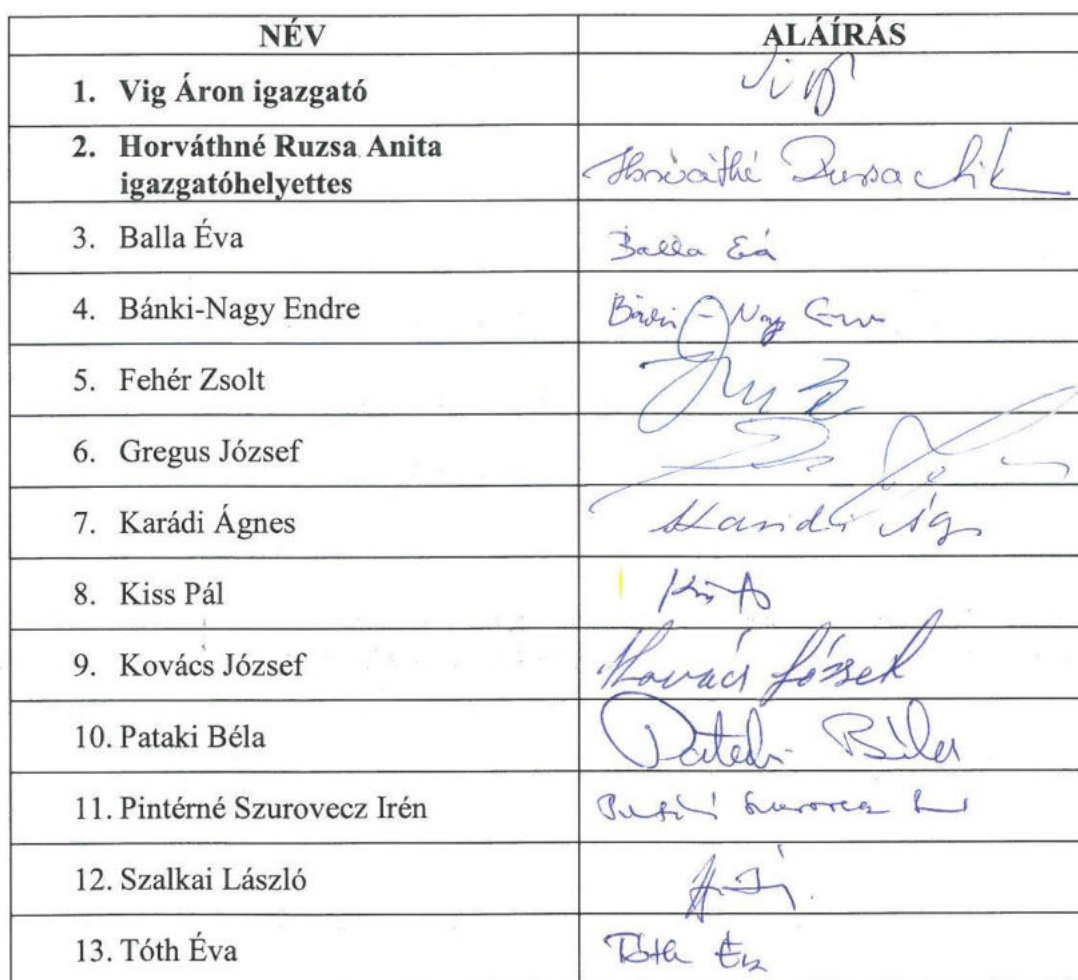 NÉV ALÁÍRÁS
1. Vig Áron igazgató Vig
2. Horváthné Ruzsa Anita
igazgatóhelyettes Horváthné Ruzsa
3. Balla Éva Balla Éva
4. Bánki-Nagy Endre Bánki-Nagy
5. Fehér Zsolt
6. Gregus József
7. Karádi Ágnes Karádi Ág
8. Kiss Pál
9. Kovács József Kovács József
10. Pataki Béla Pataki Béla
11. Pintérné Szurovecz Irén Szurovecz
12. Szalkai László
13. Tóth Éva Tóth Éva